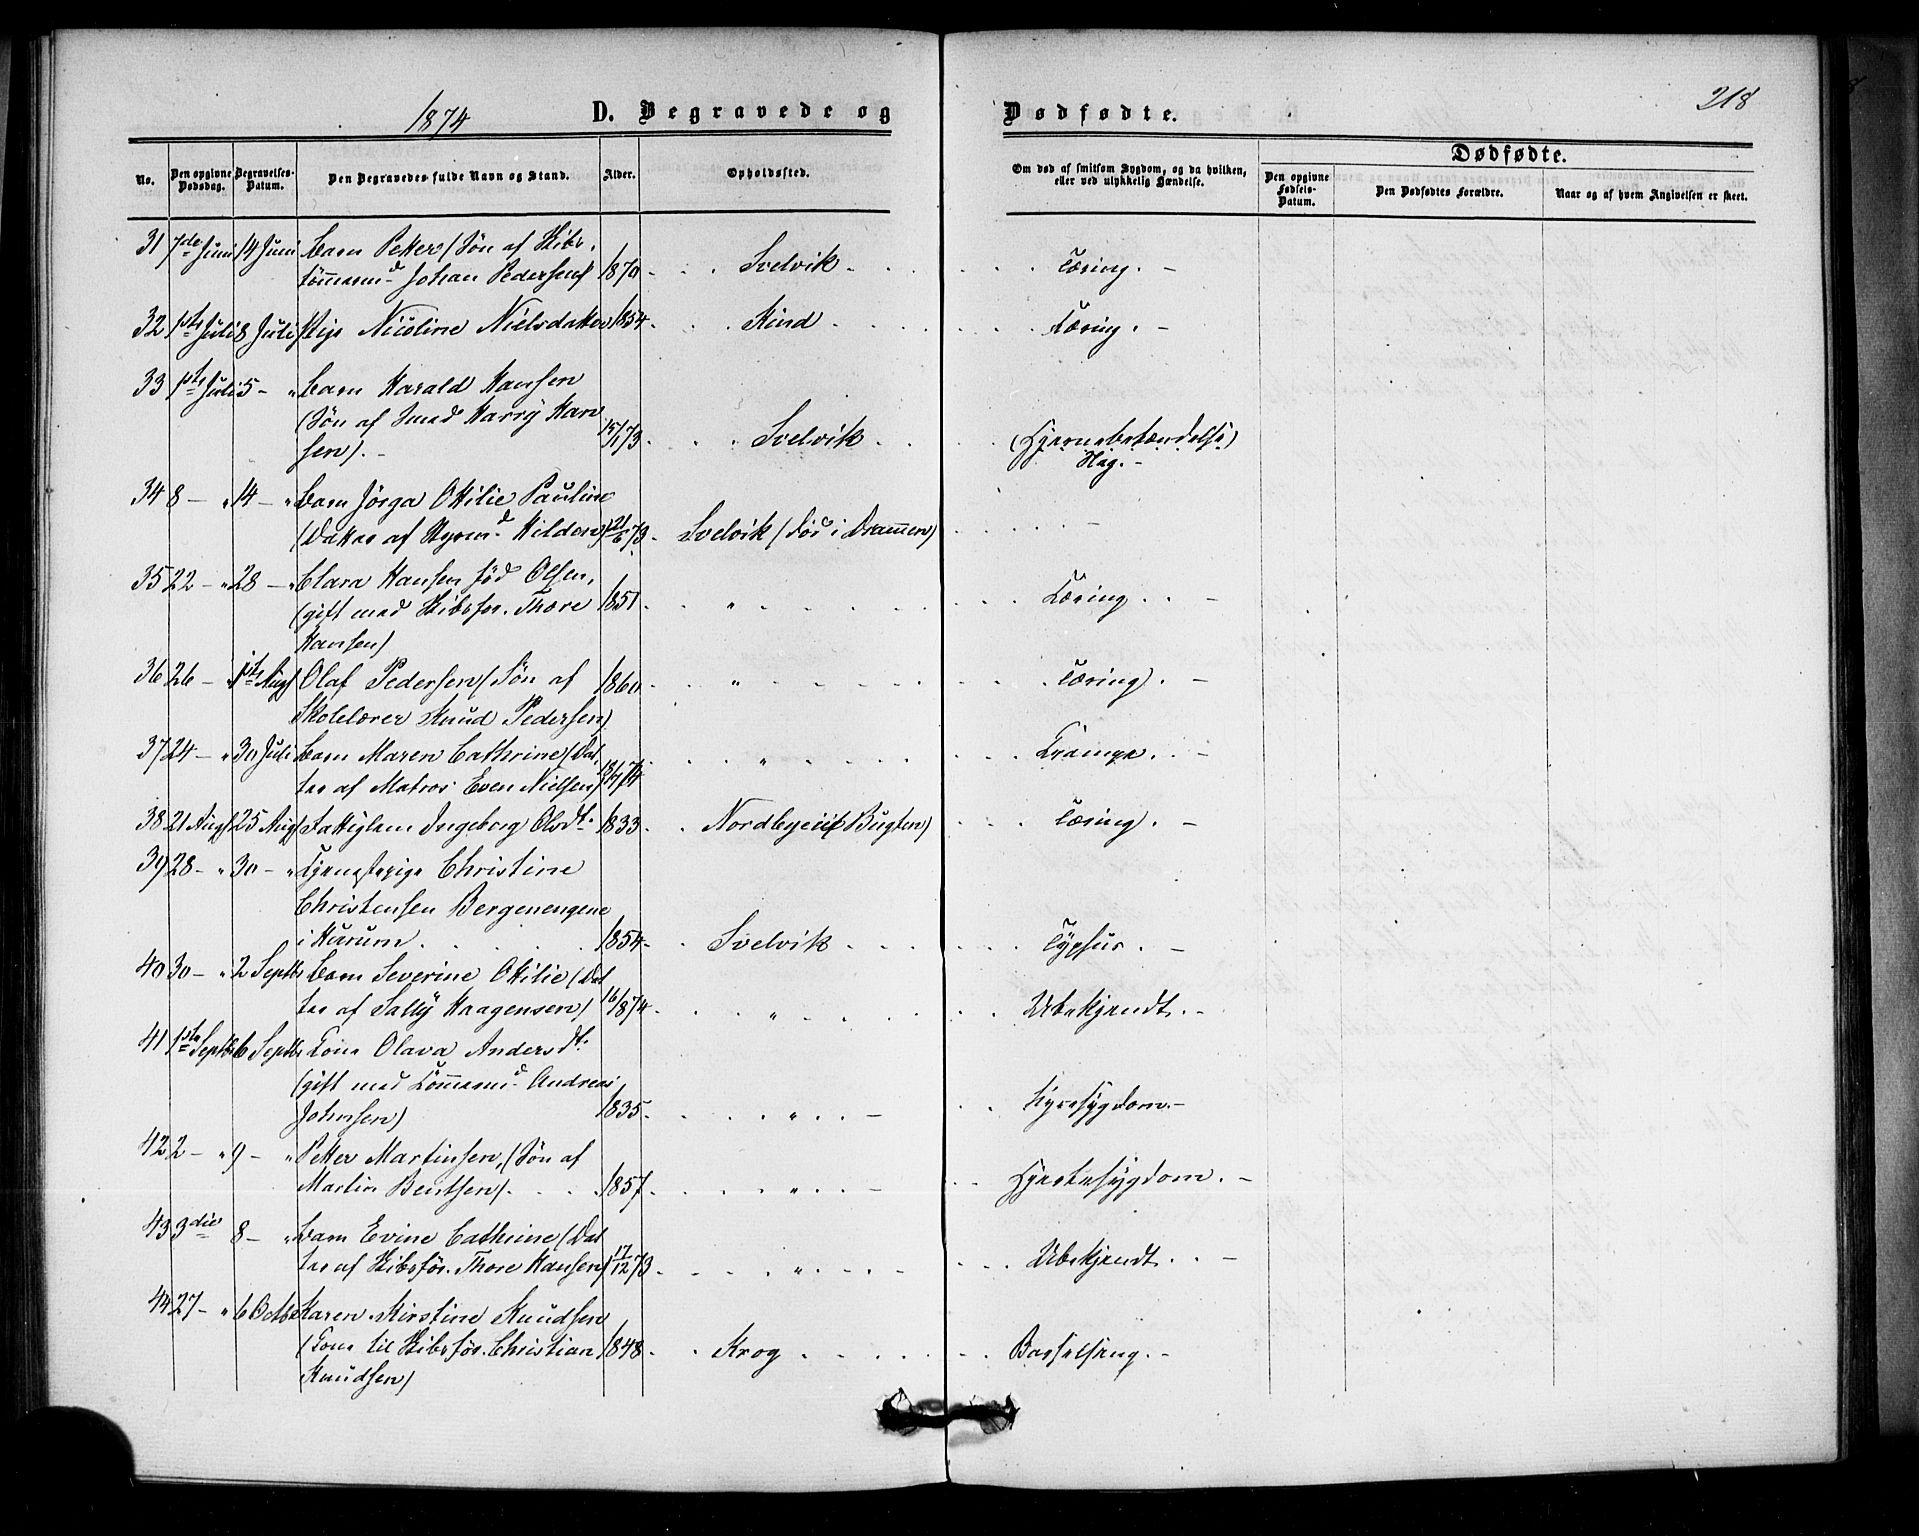 1874
D. Begravede og
Dødfødte.
218
No.
Den opgivne Dødsdag.
Begravelses-Datum.
Den Begravedes fulde Navn og Stand.
Alder.
Opholdssted.
Om død af smitsom Sygdom, og da hvilken, eller ved ulykkelig Hændelse.
Dødfødte.
Den opgivne Fødsels-Datum.
Den Dødfødtes Forældre.
Naar og af hvem Angivelsen er skeet.
31 7de Juni 14 Juni Barn Petter (Søn af Skibs-
tømmermd Johan Pedersen) 1870 Svelvik Tæring.
32 1ste Juli 8 Juli Pige Nicoline Nielsdatter 1854 Kind Tæring.
33 1ste Juli 5 - " Barn Harald Hansen
(Søn af Smed Harry Han
sen). 15/1 73 Svelvik (Hjernebetændelse)
34 8 - " 14 - " Barn Jörga Ottilie Pauline
(Datter af Styrmd Hilden) 21/6 73 Svelvik (död i Drammen)
35 22 - " 28 - " Clara Hansen född Olsen,
(gift med Skibsfør. Thore 1851 " Tæring.
Hansen)
36 26 - " 1ste Aug Olaf Pedersen (Søn af 1860 " Tæring.
Skolelærer Knud Pedersen)
37 24 - " 30 Juli Barn Maren Cathrine (Dat
ter af Matros Even Nielsen) " Krampe.
38 21 Aug 25 Aug Fattiglem Ingeborg Olsdt. 1833 Nordbyeie (Bugten) Tæring.
39 28 - " 30 - " Tjenestepige Christine
Christensen Bergenengene
i Hurum 1854 Svelvik Typhus.
40 30 - " 2 Septbr Barn Severine Ottilie (Dat
ter af Sally Haagensen) 16/8 74 " Ubekjendt.
41 1ste Septbr 6 Septbr Kone Olava Andersdt.
(gift med Tømmermd Andreas
Johnsen) 1835 " Nyresygdom.
42 2 - " 9 - " Petter Martinsen, (Søn af
Martin Bentsen) 1857 " Hjertesygdom.
43 3die 8 - " Barn Evine Cathrine (Dat
ter af Skibsför. Thore Hansen) 17/12 73 " Ubekjendt.
44 27 - " 6 Octbr Karen Kirstine Knudsen
(Kone til Skibsför. Christian 1848 Krog Barselseng.
Knudsen)